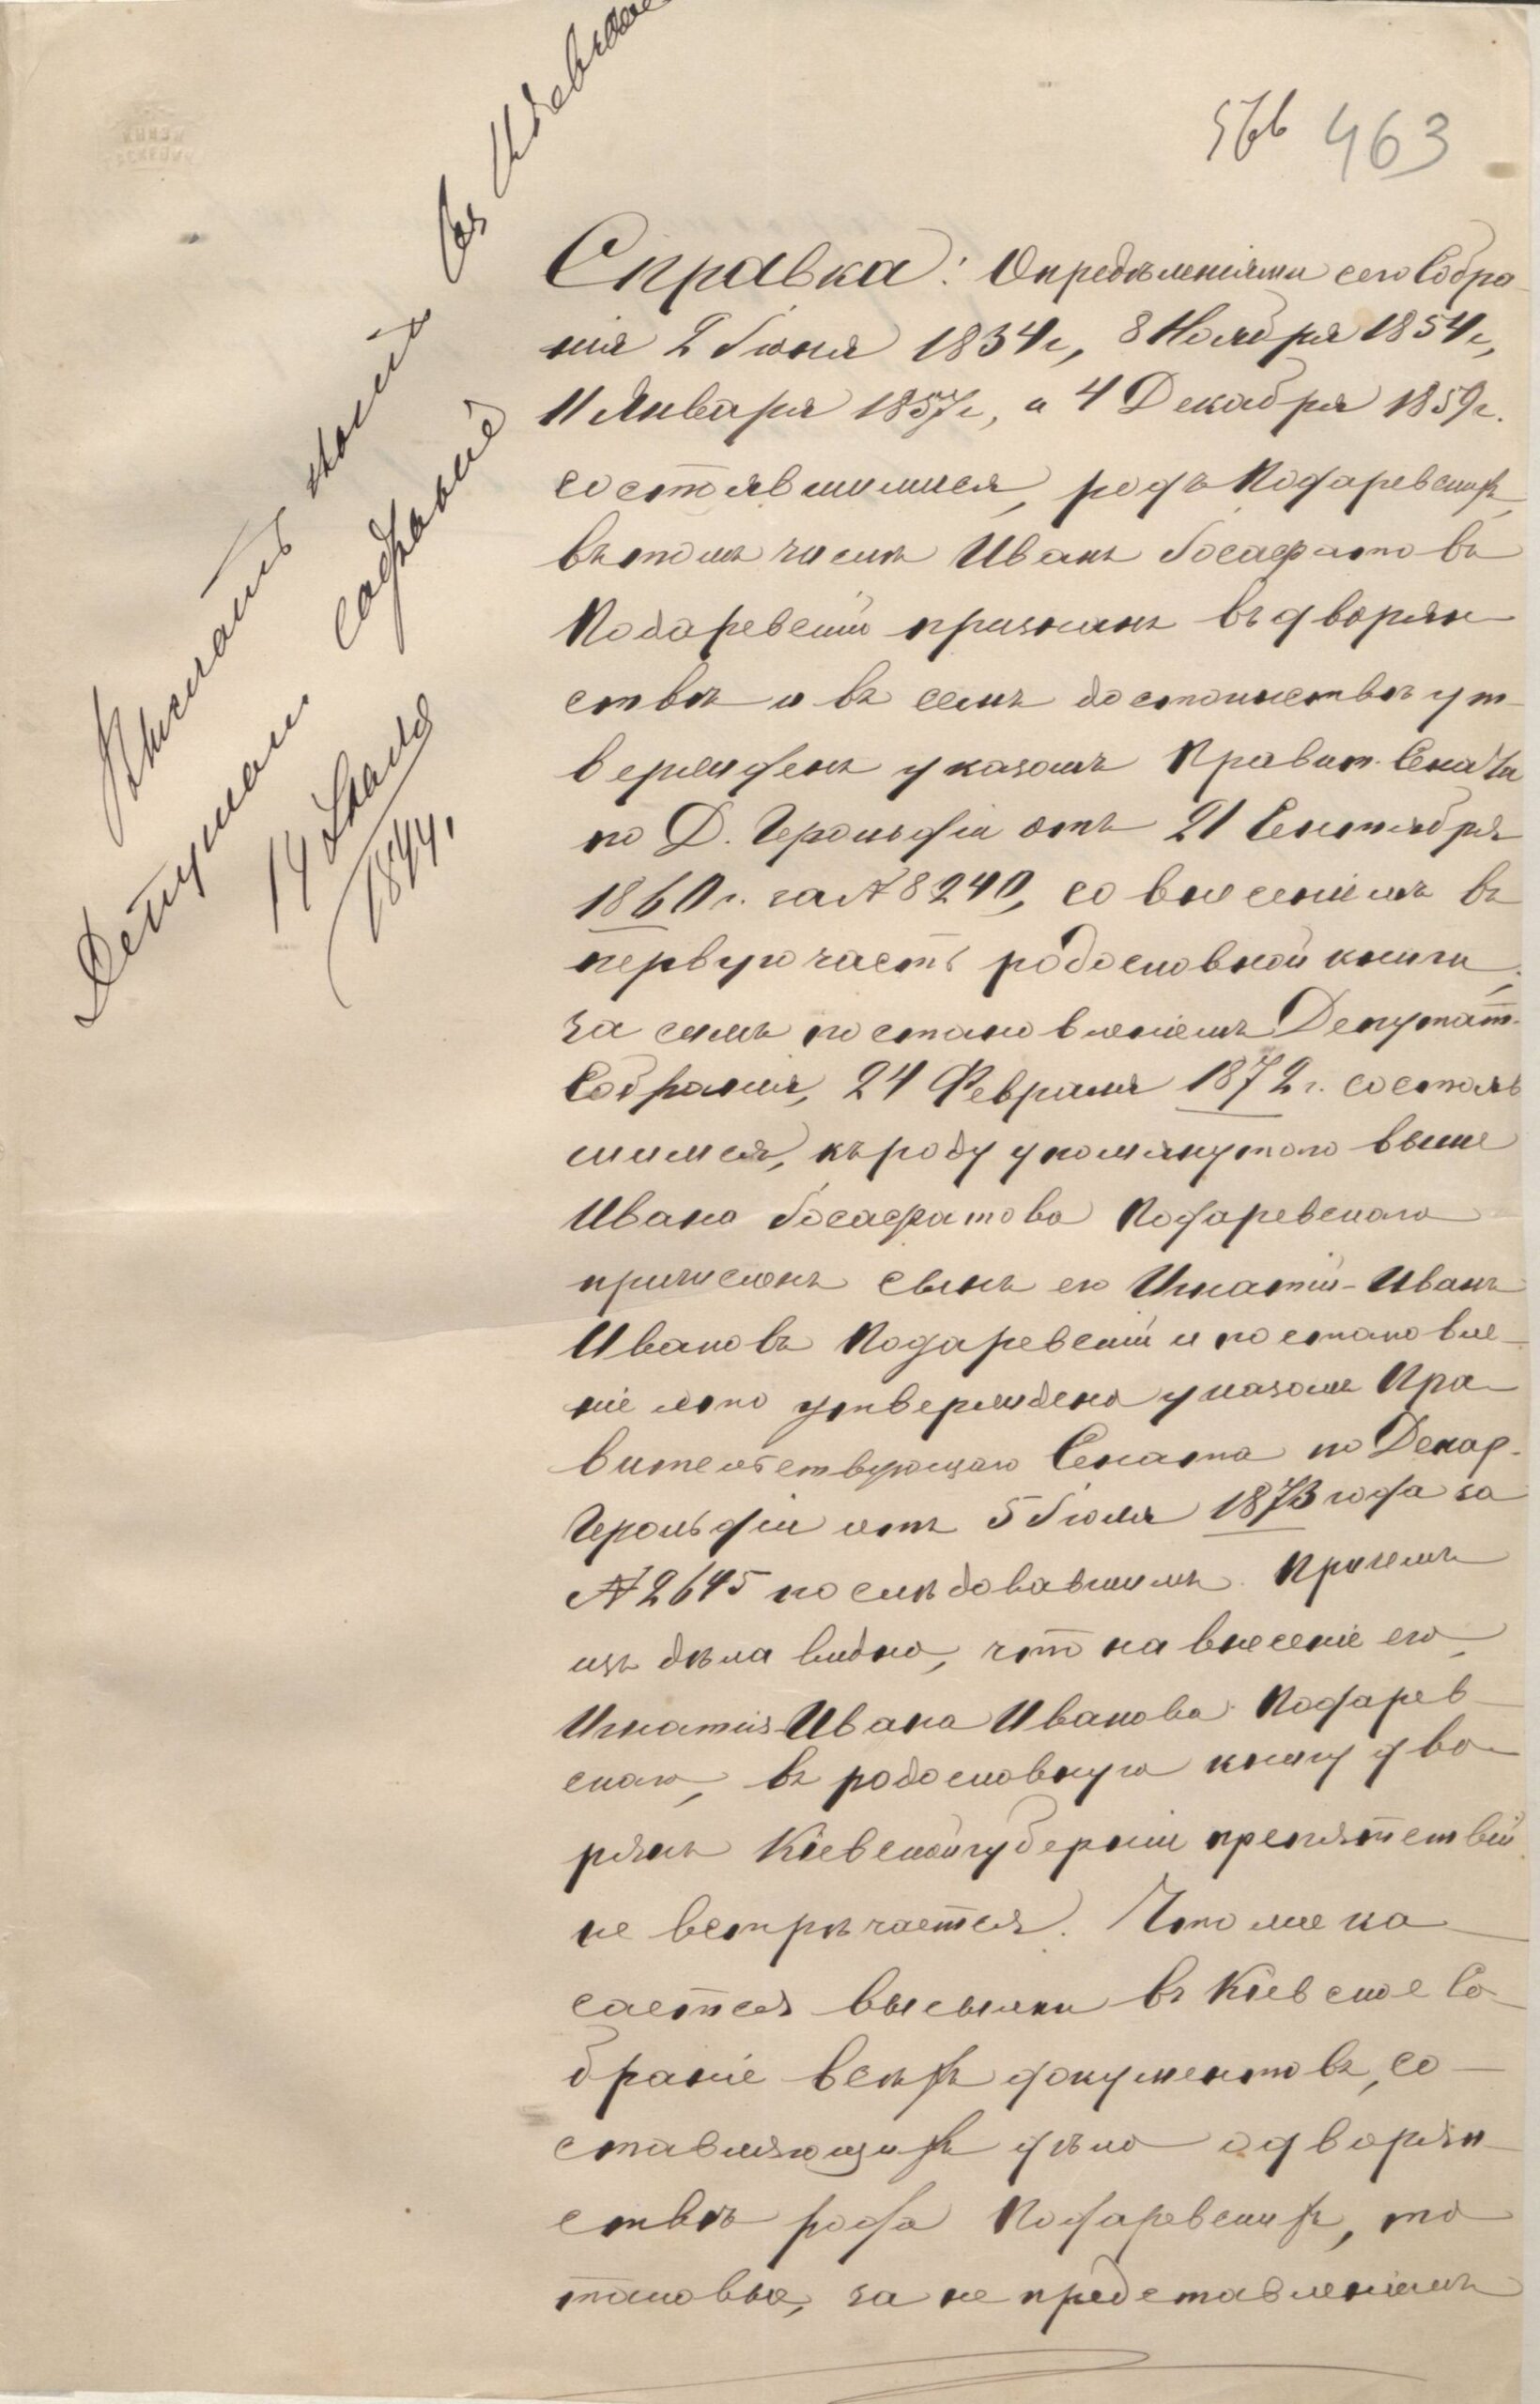 463
Справка: Опредѣленіями сего Собра-
нія 2 Іюня 1834 г, 8 Ноября 1854 г,
11 Января 1857 г, и 4 Декабря 1859 г.
состоявшимися, родъ Подаревскихъ,
въ томъ числѣ Иванъ Іосафатовъ
Подаревскій признанъ въ дворян-
ствѣ и въ семъ достоинствѣ ут-
вержденъ указомъ Правит. Сената
по Д. Герольдіи отъ 21 Сентября
1860 г. за № 8240, со внесеніемъ въ
первую часть родословной книги;
за симъ постановленіемъ Депутат.
Собранія, 24 Февраля 1872 г. состояв
шимся, къ роду упомянутого выше
Ивана Іосафатова Подаревскаго
причисленъ сынъ его Игнатій-Иванъ
Ивановъ Подаревскій и постановле-
ніе это утверждено указомъ Пра-
вительствующаго Сената по Депар.
Герольдіи отъ 5 Іюля 1873 года за
№ 2645 послѣдовавшимъ. Причемъ
изъ дѣла видно, что на внесеніе его,
Игнатія-Ивана Иванова Подарев-
скаго, въ родословную книгу дво-
рянъ Кіевской губерніи препятствій
не встрѣчается. Что же ка-
сается высылки въ Кіевское Со-
браніе всѣхъ документовъ, со-
ставляющихъ дѣло о дворян-
ствѣ рода Подаревскихъ, то
таковые, за не представленіемъ
въ Кіевское
Депутат. Собраніе
14 Мая